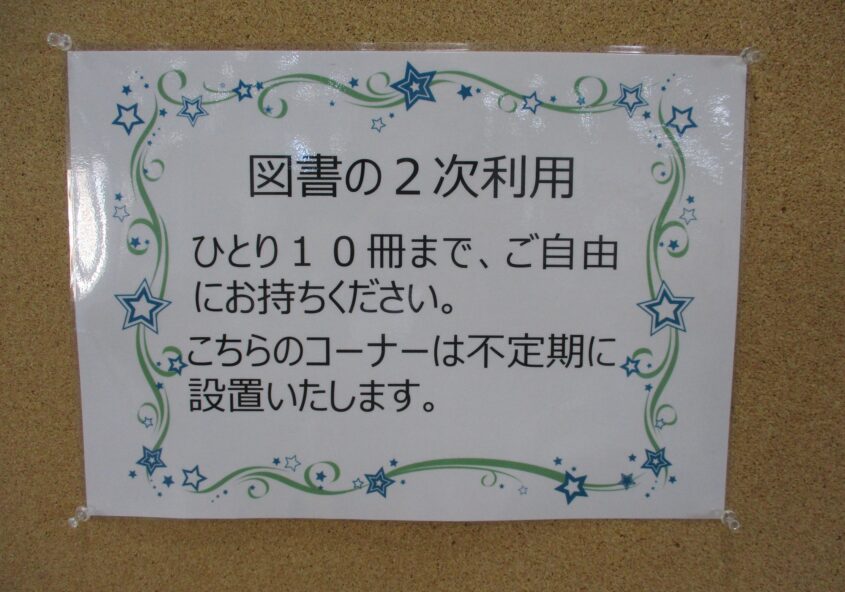 図書の２次利用
ひとり１０冊まで、ご自由
にお持ちください。
こちらのコーナーは不定期に
設置いたします。